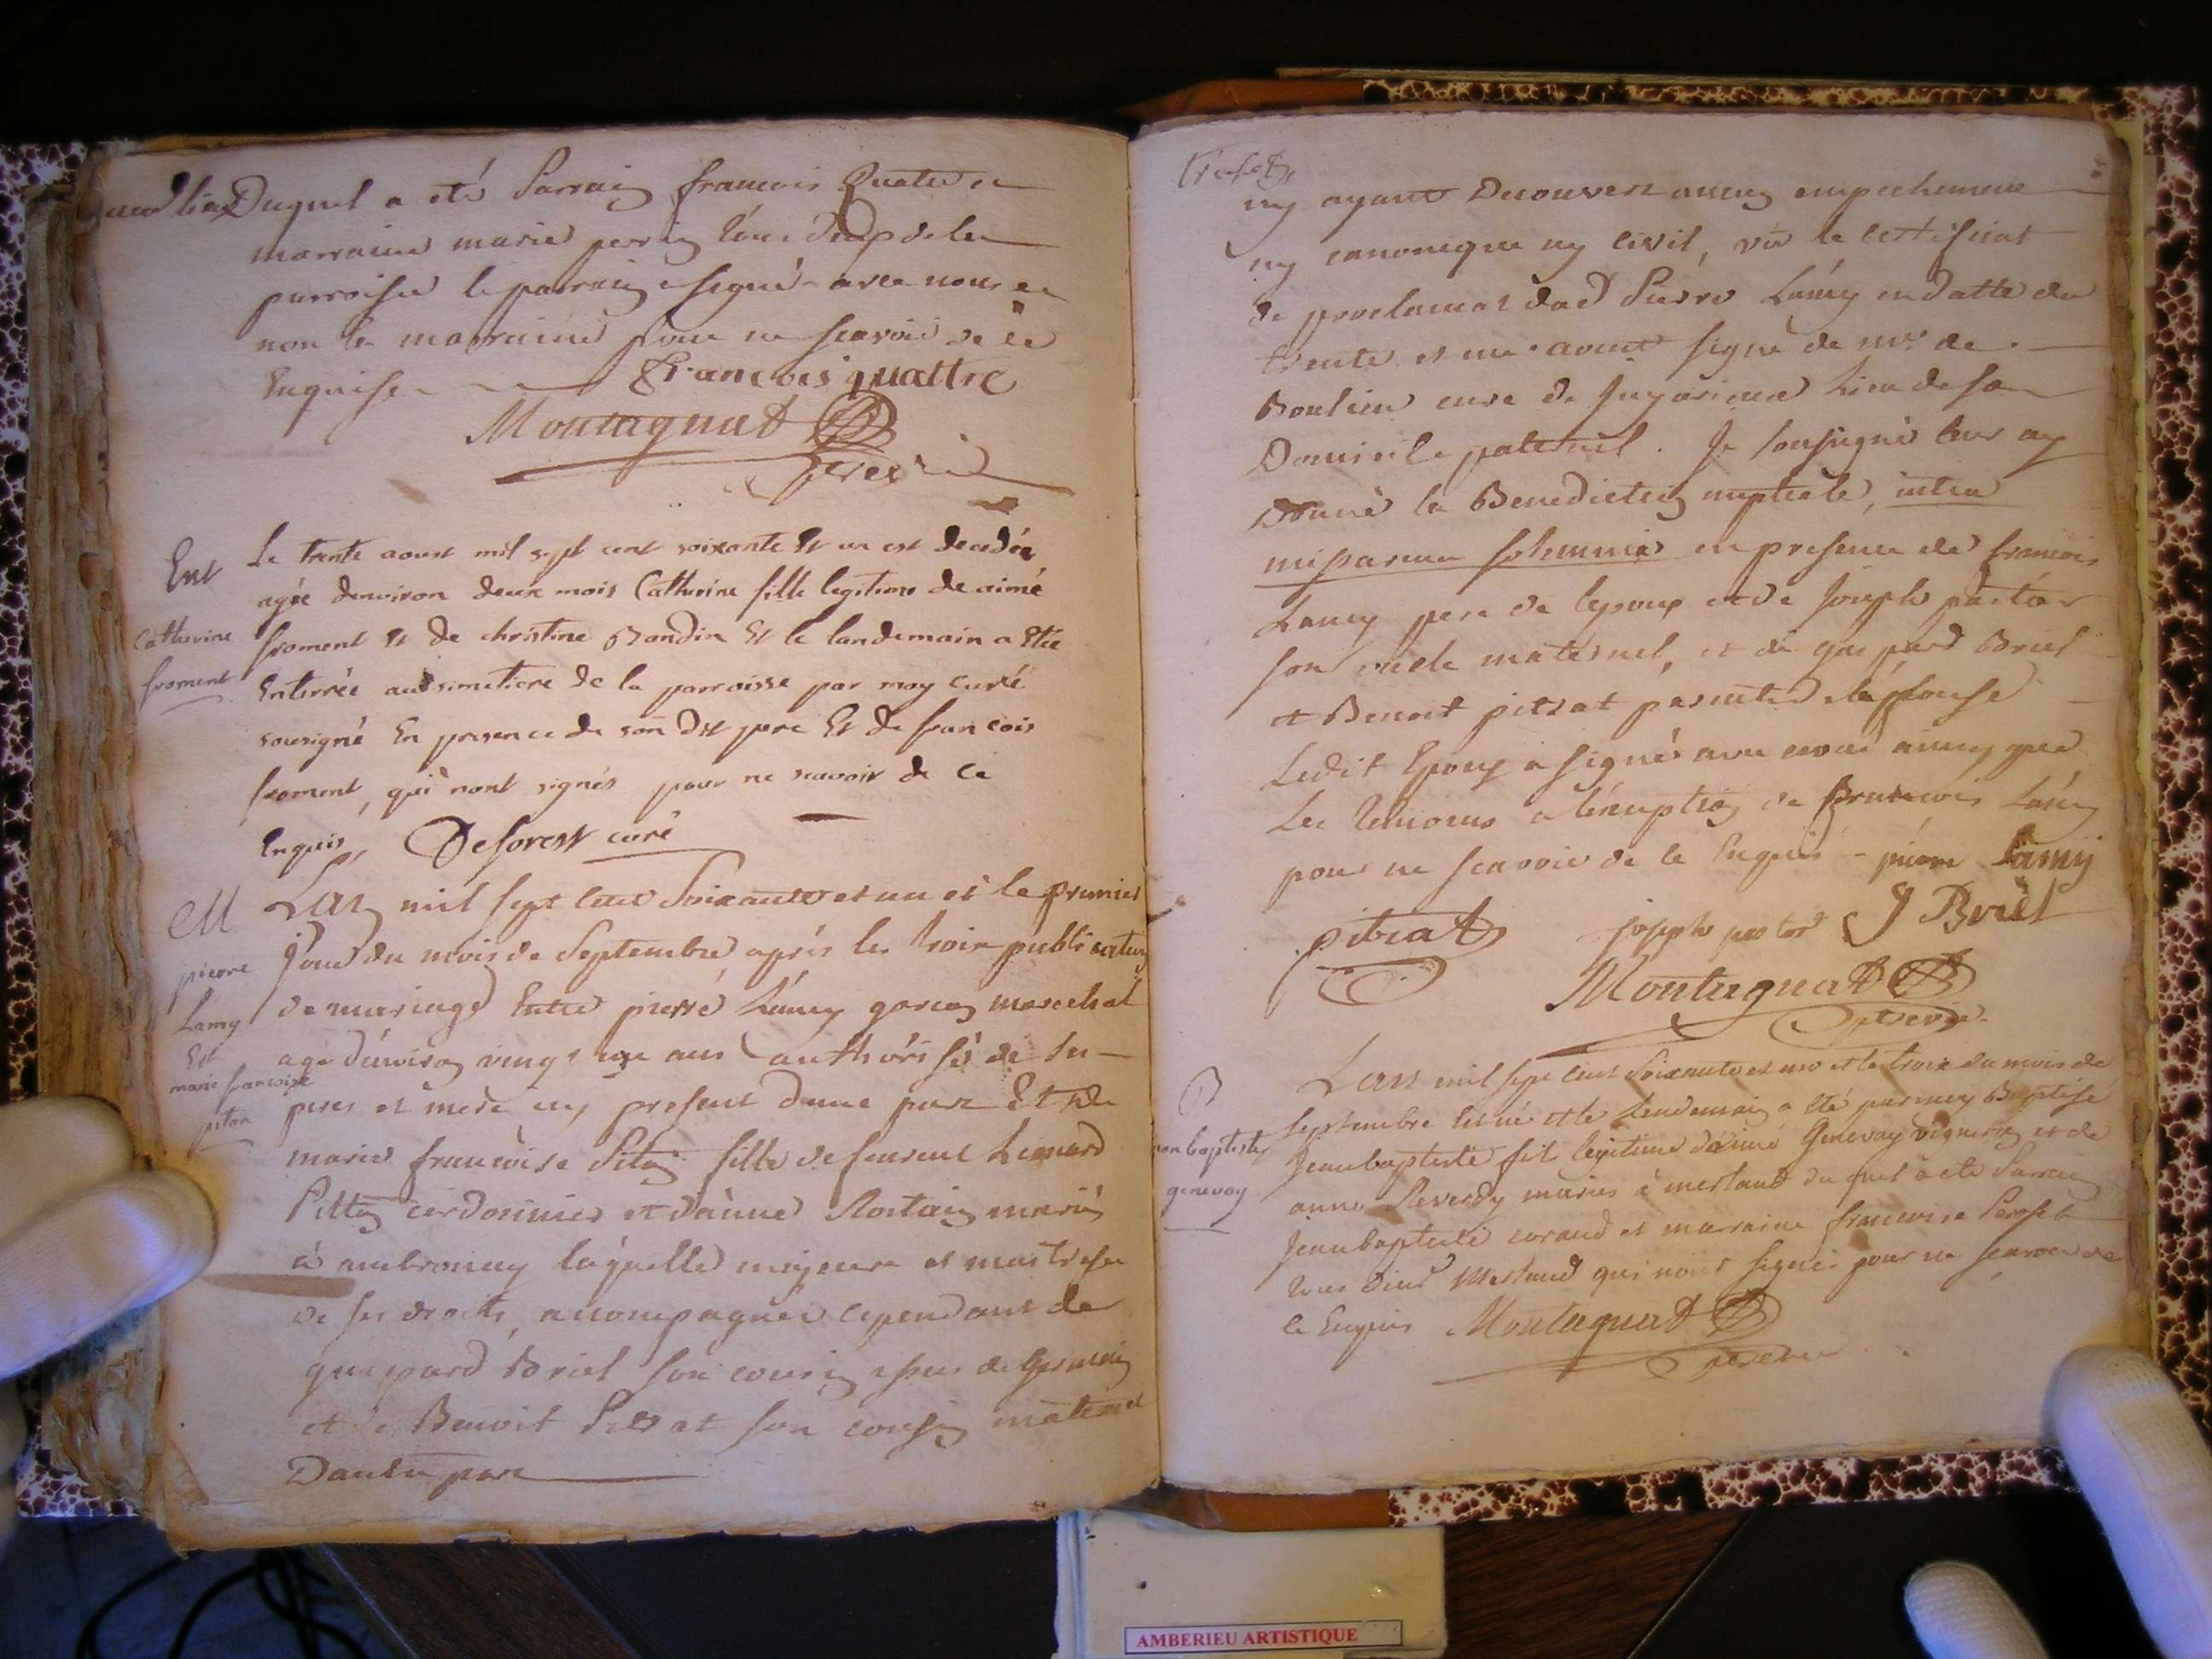 Duquel a eté Parrain francois Quatre et
marraine marie perrin tous deux de la
parroisse le parrain signé avec nous et
non la marraine pour ne scavoir de ce
Enquise francois quattre
Montagnat
Ent
Catherine
froment
Le trente aoust mil sept cent soixante Et un est decedée
agée denviron deux mois Catherine fille legitime de aimé
froment Et de christine Bandin Et le landemain a Etee
Enterrée au simetiere de la parroisse par moy curé
sousigné En presence de son dit pere Et de francois
froment, qui nont signés pour ne scavoir de ce
Enquis, Deforest curé
M
pierre
Lamy
Et
marie francoise
piton
Lan mil sept cent Soixante et un et le premier
Jour du mois de Septembre après les trois publications
de mariage Entre pierre Lamy garçon marechal
age denviron vingt un ans authorissé de ses
peres et mere cy present dune part Et de
marie francoise Piton fille de Leonard
Pitton cordonnier et danne Rostain mariés
à ambronay laquelle majeure et maitresse
de ses droits, accompagnée cependant de
gaspard Briel son cousin issus de Germain
et de Benoit Pitrat son cousin maternel
Dautre part
ny ayant Decouvert aucun empechement
ny canonique ny civil, vû le certificat
de proclamat dud Pierre Lamy en datte du
trente et un aoust signé de mr de
Boulieu curé de Jujurieux Lieu de son
Domicile paternel. Je soussigné leur ay
Donné la Benediction nuptiale, intra
missarum solemnia en presence de francois
Lamy pere de lepoux et de Joseph pastor
son oncle maternel, et de gaspard Briel
et Benoit pitrat parents de lépouse
Ledit Epoux a signés avec nous ainsy que
Les temoins a léxeption de francois Lamy
pour ne scavoir de ce Enquis - pierre Lamy
pitrat joseph pastor J Briel
Montagnat
B
jean baptiste
genevay
Lan mil sept cent Soixante et un et le trois du mois de
Septembre est né et le Lendemain a eté par moy Baptisé
Jeanbaptiste fil legitime daimé Genevay vigneron et de
anne Reverdy mariés à merland duquel a eté Parrain
Jeanbaptiste coraud et marraine francoise
tous dud Merland qui nont signés pour ne scavoir de
ce Enquis Montagnat
AMBERIEU ARTISTIQUE